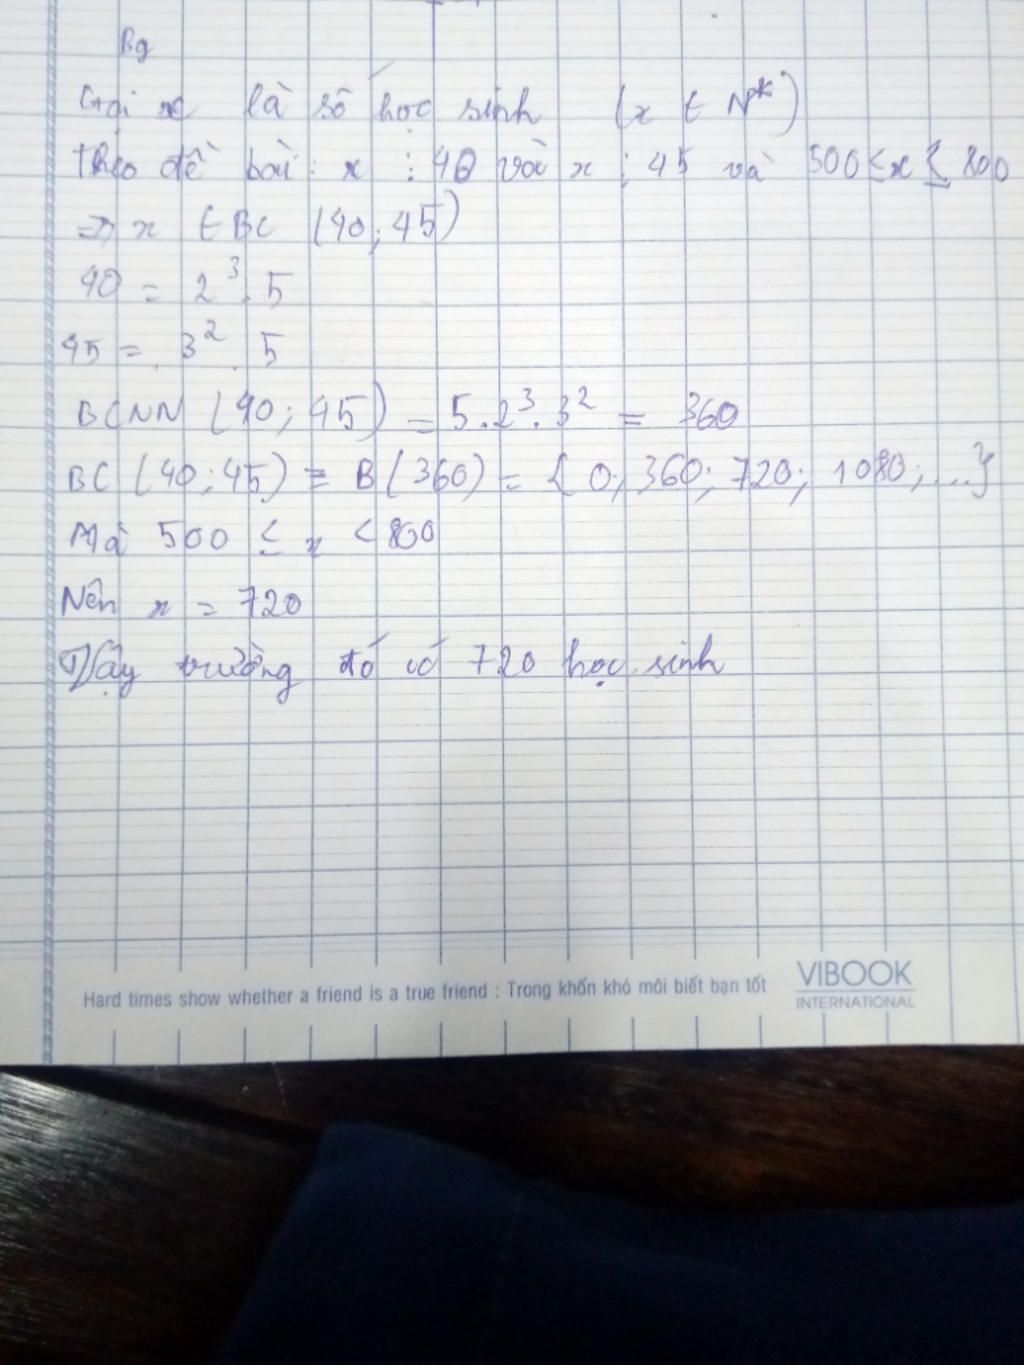 Bg
Gọi x là số học sinh (x ∈ N*)
Theo đề bài: x ⋮ 40 và x ⋮ 45 và 500 ≤ x ≤ 800
=> x ∈ BC (40; 45)
40 = 2³. 5
45 = 3² . 5
BCNN (40; 45) = 5.2³.3² = 360
BC (40; 45) = B (360) = {0; 360; 720; 1080; ...}
Mà 500 ≤ x < 800
Nên x = 720
Vậy trường đó có 720 học sinh
Hard times show whether a friend is a true friend : Trong khốn khó mới biết bạn tốt
VIBOOK
INTERNATIONAL